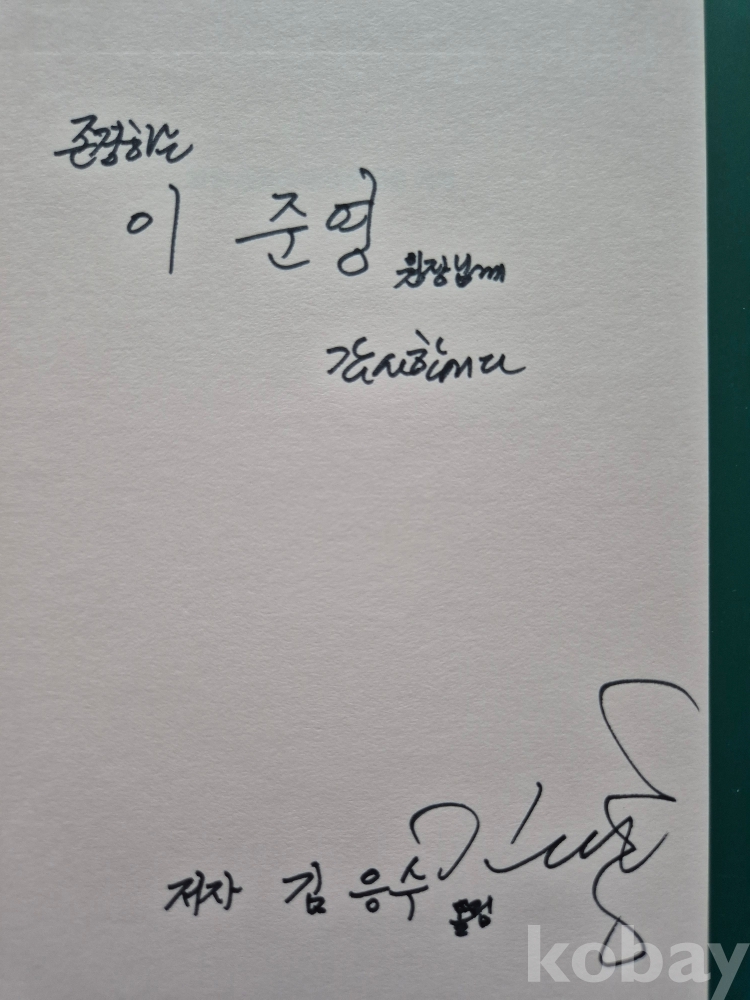 존경하는
이 준영 원장님께
감사합니다
저자 김 응수 드림
kobay